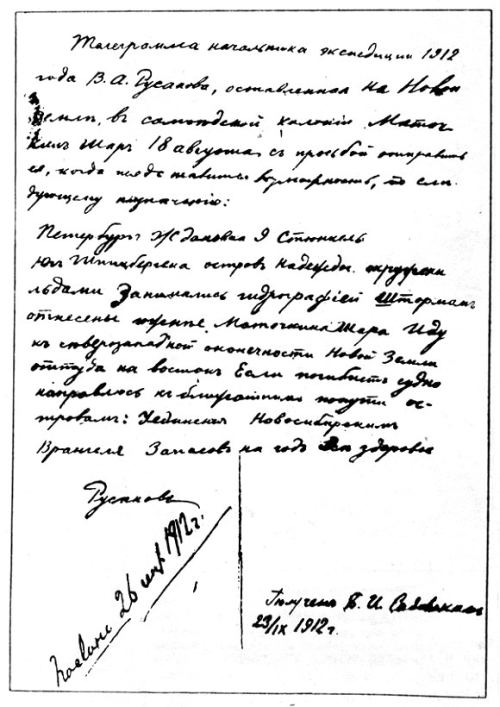 Телеграмма начальника экспедиции 1912
года В. А. Русанова, оставленная на Новой
Земле, въ самоедской колонiи Маточ-
кинъ Шаръ 18 августа съ просьбой отправить
ее, когда представится возможность, по слѣ-
дующему назначенiю:
Петербургъ Ждановка 9 Стюнкель
Югъ Шпицбергена островъ Надежды.
льдами Занимались гидрографiей Штормомъ
отнесены южнѣе Маточкина Шара Иду
къ сѣверозападной оконечности Новой Земли
оттуда на востокъ Если погибнетъ судно
направлюсь къ ближайшимъ попути ос-
тровамъ: Уединенiя Новосибирскимъ
Врангеля Запасовъ на годъ Всѣ здоровы
Русановъ
26 1912 г.
Получена
23/IX 1912 г.